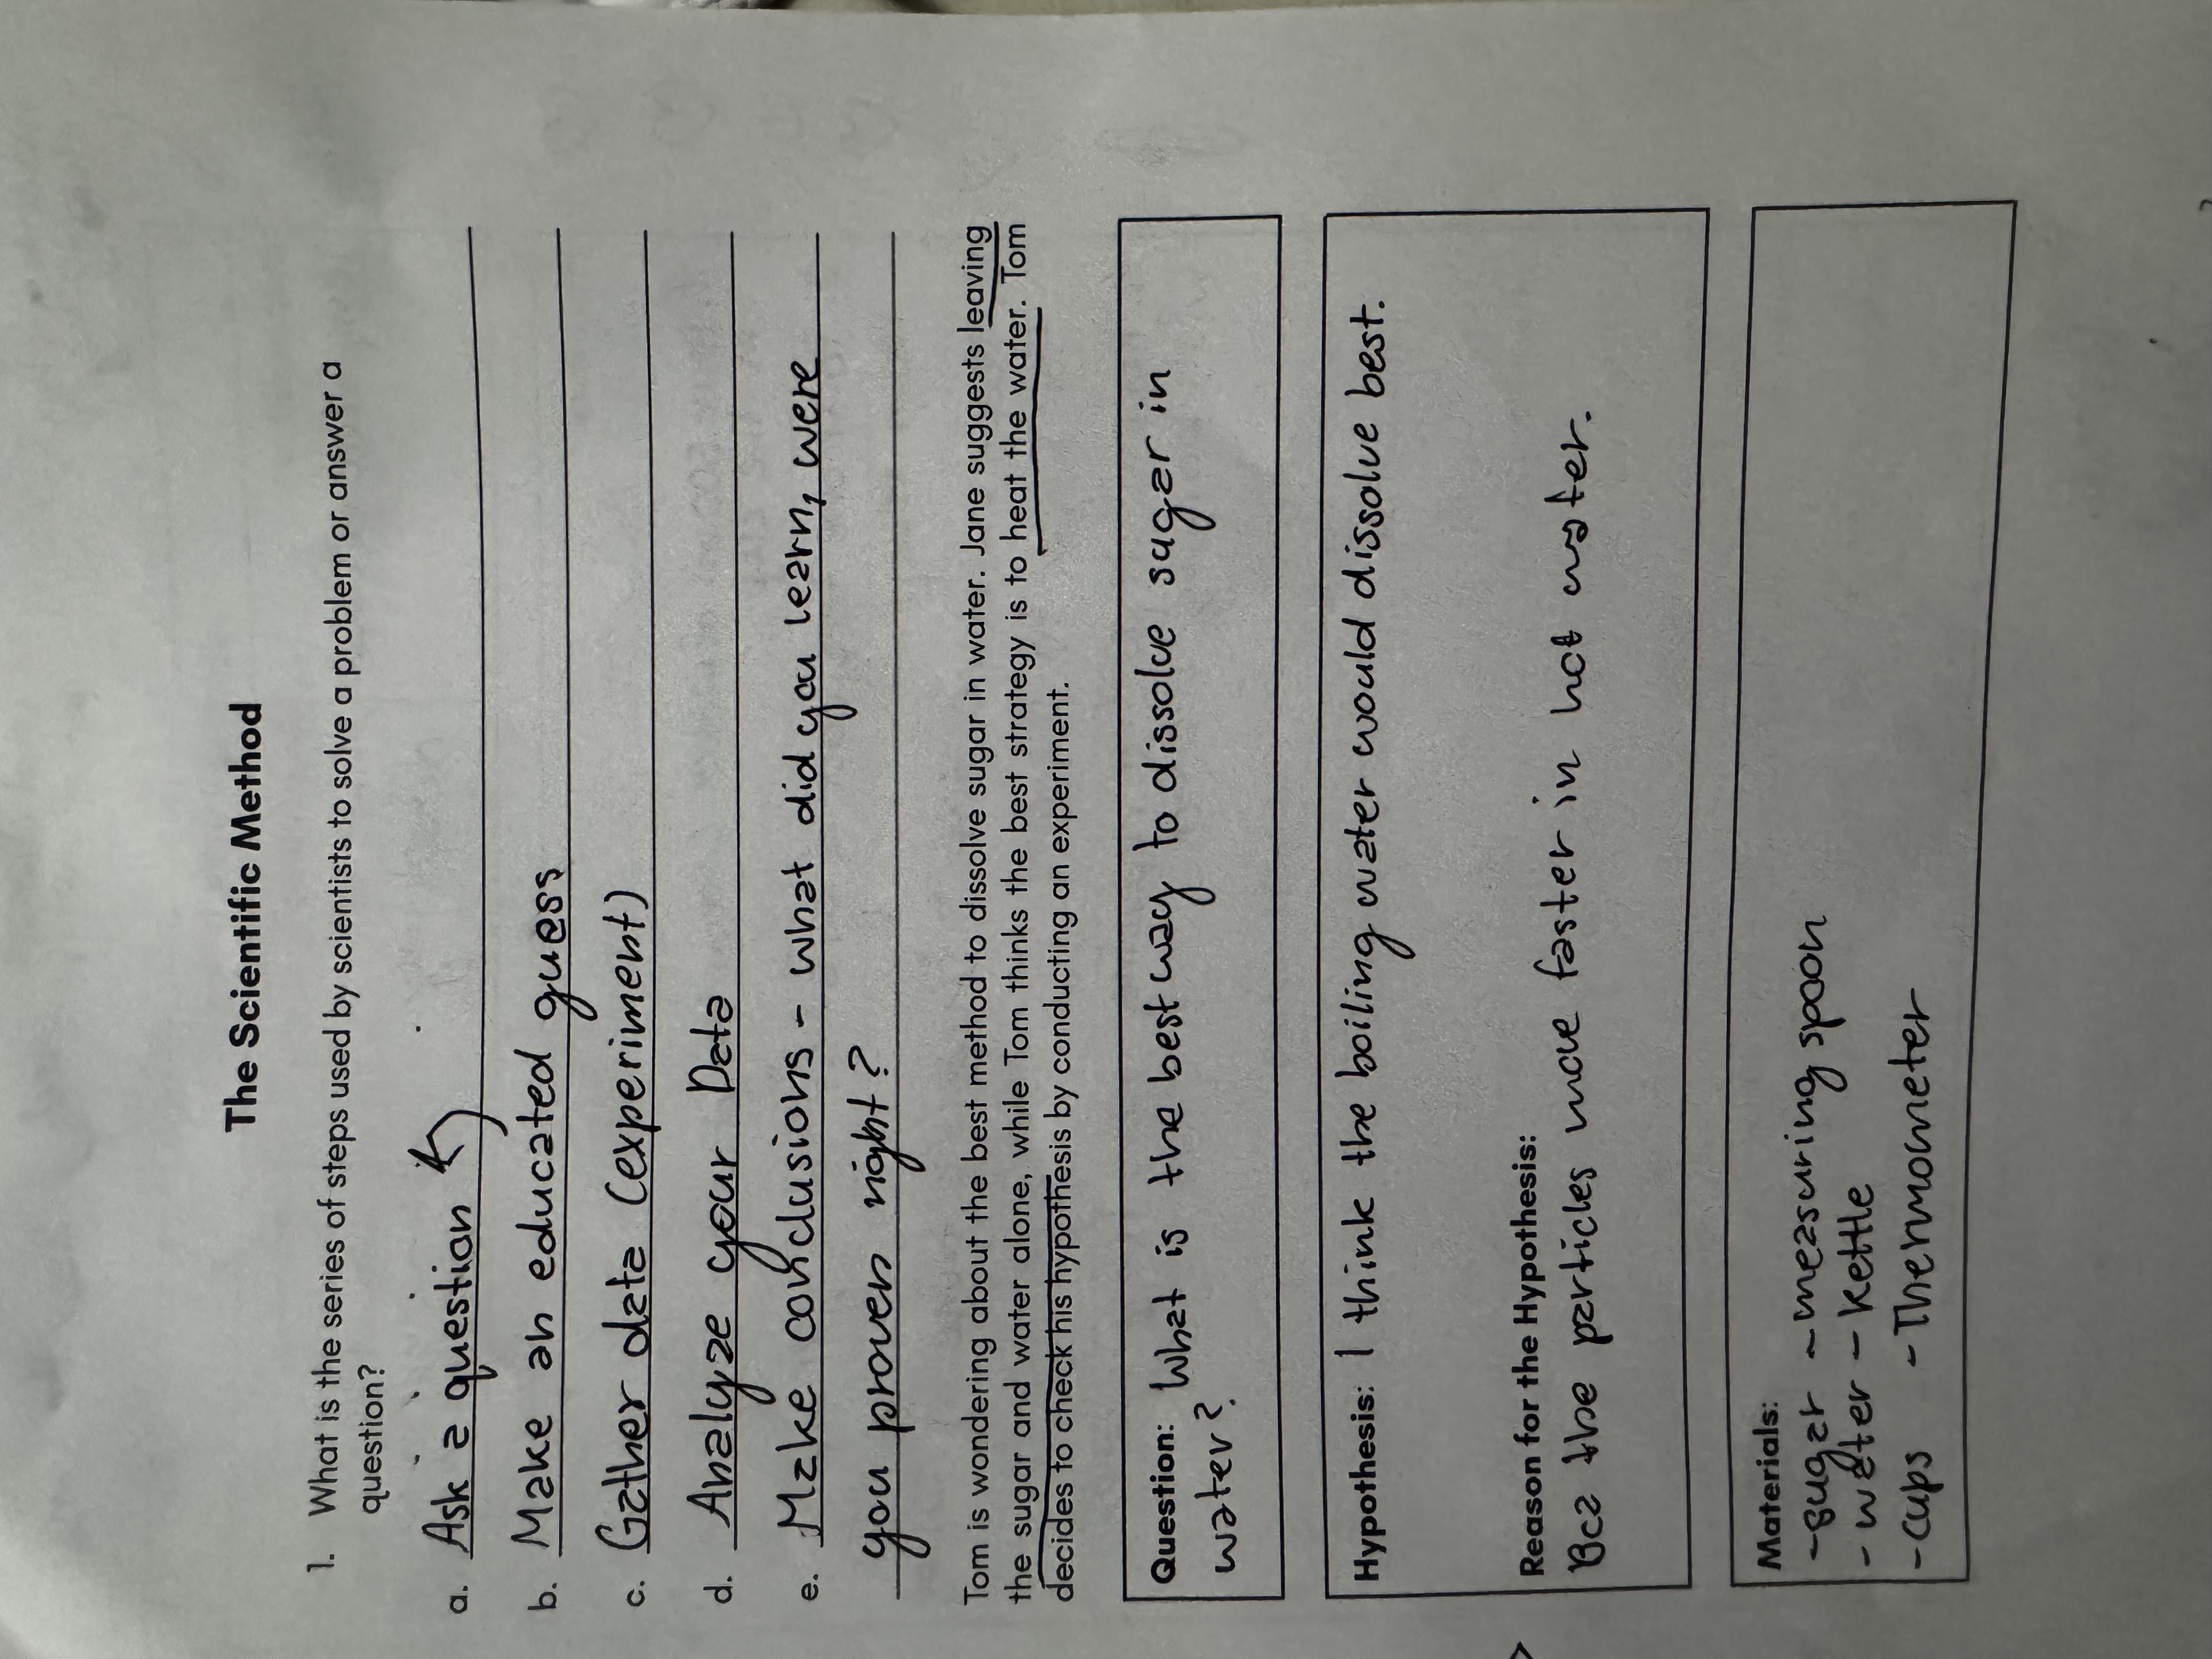 The Scientific Method
1. What is the series of steps used by scientists to solve a problem or answer a
question?
a. Ask a question
b. Make an educated guess
c. Gather data (experiment)
d. Analyze your Data
e. Make conclusions - what did you learn, were
you proven right?
Tom is wondering about the best method to dissolve sugar in water. Jane suggests leaving
the sugar and water alone, while Tom thinks the best strategy is to heat the water. Tom
decides to check his hypothesis by conducting an experiment.
Question: What is the best way to dissolve sugar in
water?
Hypothesis: I think the boiling water would dissolve best.
Reason for the Hypothesis:
Bcz the particles move faster in hot water.
Materials:
- sugar - measuring spoon
- water - Kettle
- cups - Thermometer